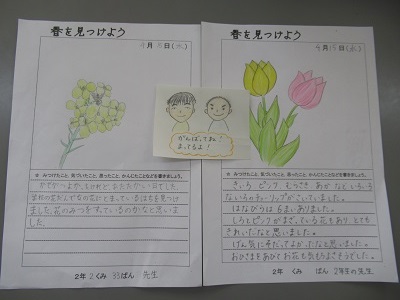 春を見つけよう
4月 日(水)
☆ みつけたこと、気づいたこと、思ったこと、かんじたことなどを書きましょう。
かぜがつよかったけれど あたたかい日でした。
学校の花だんでなの花にとまっているはちを見つけ
ました。花のみつをすっているのかなと思いまし
た。
2年 2くみ 33ばん 先生
がんばってね!
まってるよ!
春を見つけよう
4月15日(水)
☆ みつけたこと、気づいたこと、思ったこと、かんじたことなどを書きましょう。
きいろ ピンク むらさき あか など いろいろ
ないろのチューリップがさいていました。
はなびらは 6まいありました。
しろとピンクが まざっている花もあり、とても
きれいだなと思いました。
げん気にそだってよかったなと思いました。
おひさまをあびてお花も気もちよさそうでした。
2年 くみ ばん 2年生の先生